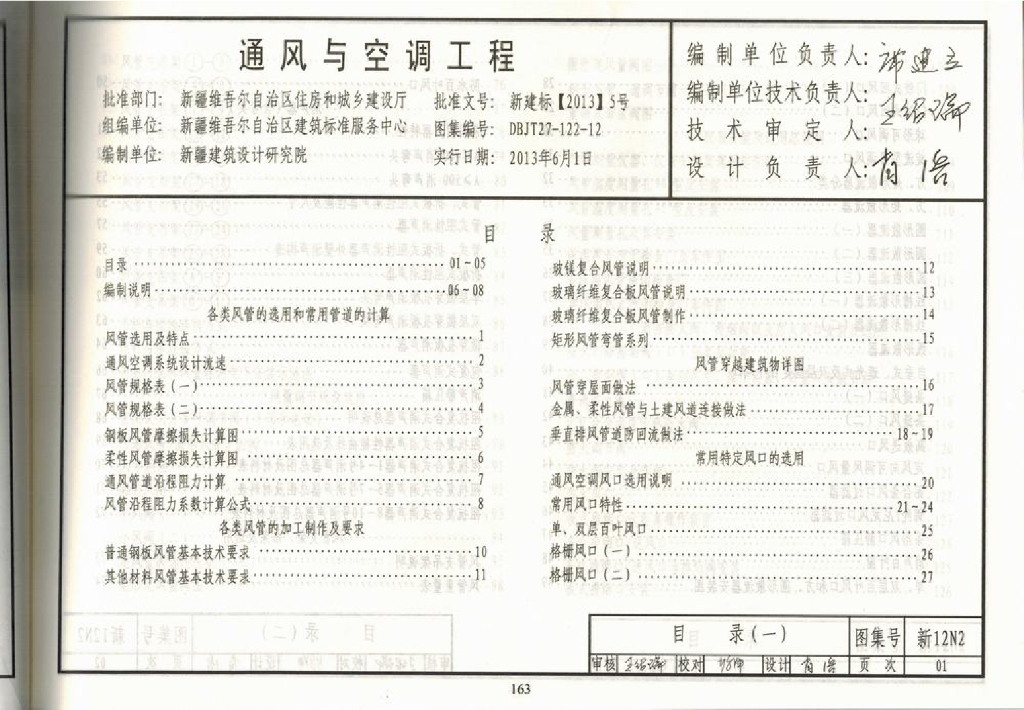 通风与空调工程
批准部门：新疆维吾尔自治区住房和城乡建设厅 批准文号：新建标【2013】5号
组编单位：新疆维吾尔自治区建筑标准服务中心 图集编号：DBJT27-122-12
编制单位：新疆建筑设计研究院 实行日期：2013年6月1日
编制单位负责人：
编制单位技术负责人：
技术审定人：
设计负责人：
目 录
目录 01~05
编制说明 06~08
各类风管的选用和常用管道的计算
风管选用及特点 1
通风空调系统设计流速 2
风管规格表（一） 3
风管规格表（二） 4
钢板风管摩擦损失计算图 5
柔性风管摩擦损失计算图 6
通风管道沿程阻力计算 7
风管沿程阻力系数计算公式 8
各类风管的加工制作及要求
普通钢板风管基本技术要求 10
其他材料风管基本技术要求 11
玻镁复合风管说明 12
玻璃纤维复合板风管说明 13
玻璃纤维复合板风管制作 14
矩形风管弯管系列 15
风管穿越建筑物详图
风管穿屋面做法 16
金属、柔性风管与土建风道连接做法 17
垂直排风管道防回流做法 18~19
常用特定风口的选用
通风空调风口选用说明 20
常用风口特性 21~24
单、双层百叶风口 25
格栅风口（一） 26
格栅风口（二） 27
目 录（一） 图集号 新12N2
审核 校对 设计 页次 01
163